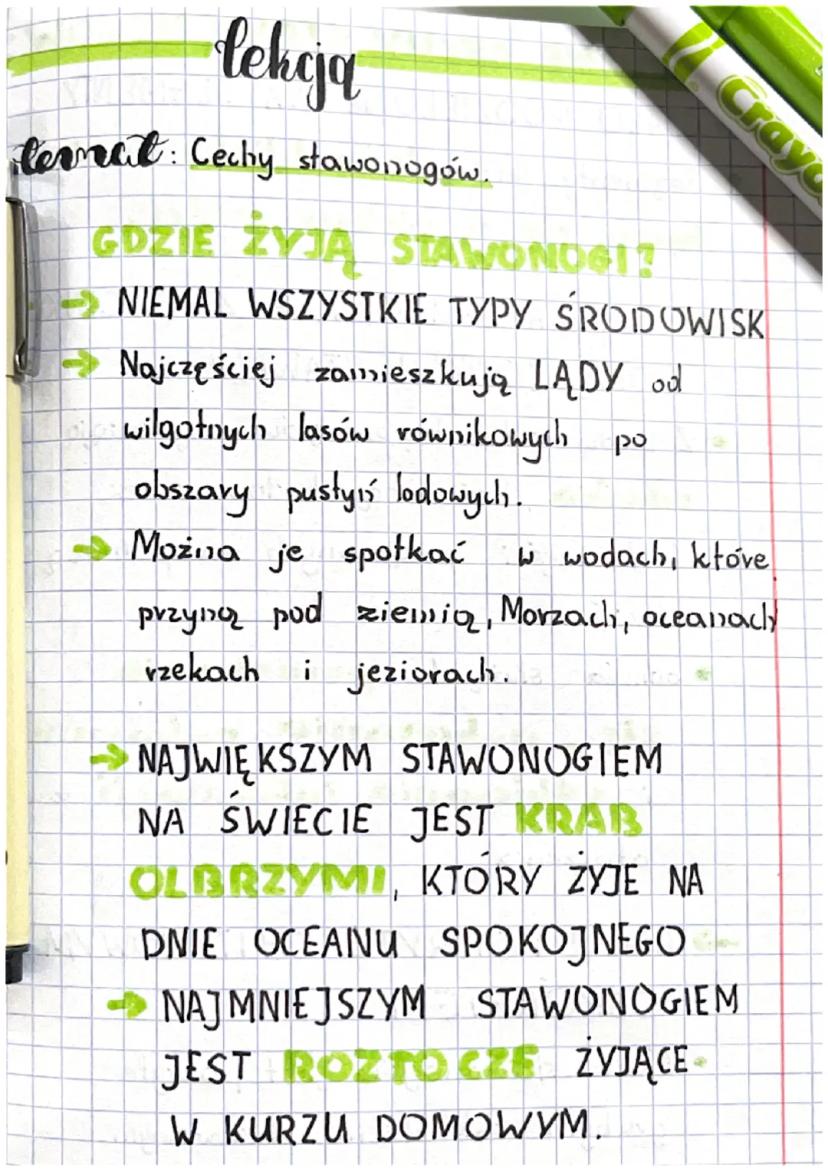 lekcja
temat: Cechy stawonogów.
Crayo
GDZIE ŻYJĄ STAWONOGI?
→ NIEMAL WSZYSTKIE TYPY ŚRODOWISK
→ Najczęściej zamieszkują LĄDY od
wilgotnych lasów równikowych po
obszary pustyń lodowych.
→ Można je spotkać w wodach, które
przyną pod ziemią, Morzach, oceanach
rzekach i jeziorach.
→ NAJWIĘKSZYM STAWONOGIEM
NA ŚWIECIE JEST KRAB
OLBRZYMI, KTÓRY ŻYJE NA
DNIE OCEANU SPOKOJNEGO
→ NAJMNIEJSZYM STAWONOGIEM
JEST ROZTOCZE ŻYJĄCE
W KURZU DOMOWYM.